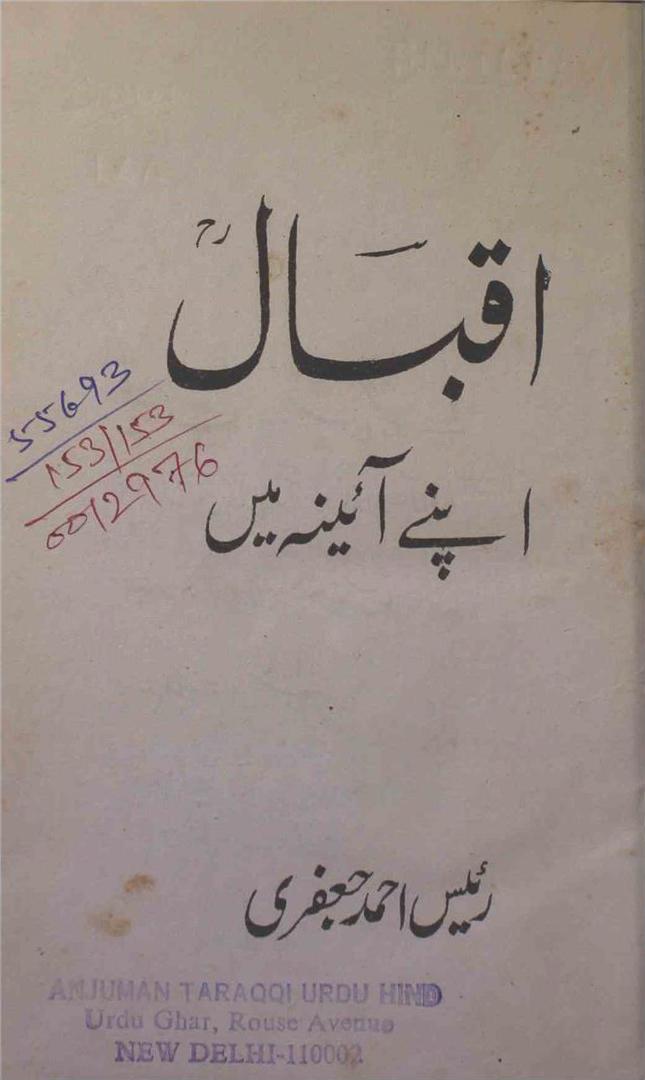 اقبالؒ
55693
153/153
0012976
اپنے آئینہ میں
رئیس احمد جعفری
ANJUMAN TARAQQI URDU HIND
Urdu Ghar, Rouse Avenue
NEW DELHI-110002